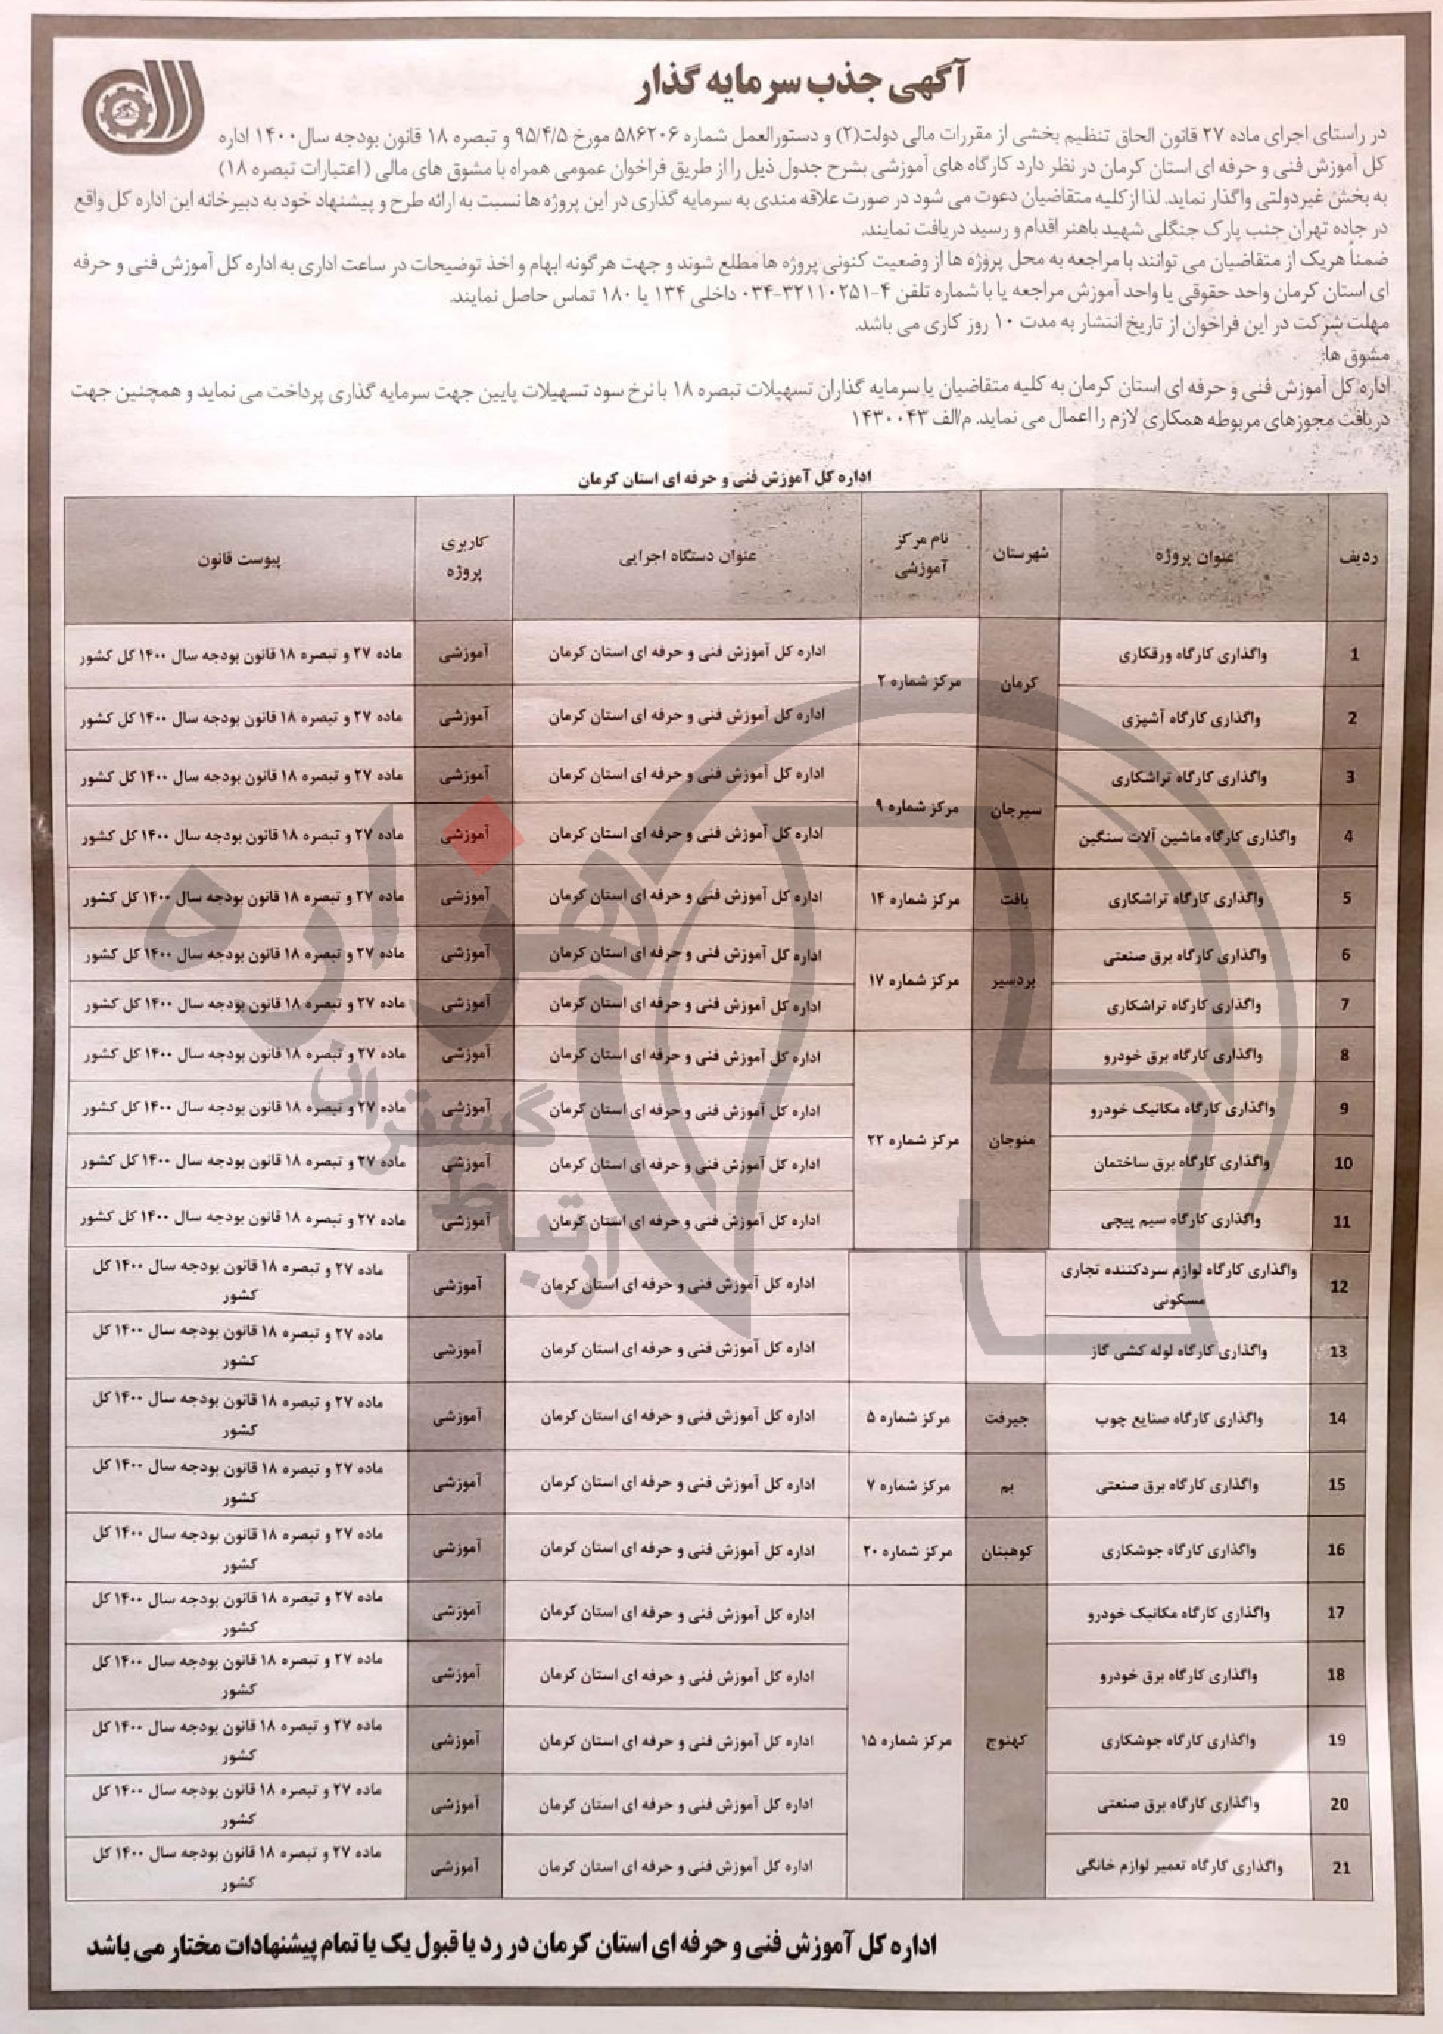 آگهی جذب سرمایه گذار
در راستای اجرای ماده ۲۷ قانون الحاق تنظیم بخشی از مقررات مالی دولت(۲) و دستورالعمل شماره ۵۸۶۲۰۶ مورخ ۹۵/۴/۵ و تبصره ۱۸ قانون بودجه سال ۱۴۰۰ اداره
کل آموزش فنی و حرفه ای استان کرمان در نظر دارد کارگاه های آموزشی بشرح جدول ذیل را از طریق فراخوان عمومی همراه با مشوق های مالی (اعتبارات تبصره ۱۸)
به بخش غیردولتی واگذار نماید. لذا از کلیه متقاضیان دعوت می شود در صورت علاقه مندی به سرمایه گذاری در این پروژه ها نسبت به ارائه طرح و پیشنهاد خود به دبیرخانه این اداره کل واقع
در جاده تهران جنب پارک جنگلی شهید باهنر اقدام و رسید دریافت نمایند.
ضمناً هریک از متقاضیان می توانند با مراجعه به محل پروژه ها از وضعیت کنونی پروژه ها مطلع شوند و جهت هرگونه ابهام و اخذ توضیحات در ساعت اداری به اداره کل آموزش فنی و حرفه
ای استان کرمان واحد حقوقی یا واحد آموزش مراجعه یا با شماره تلفن ۴-۳۲۱۱۰۲۵۱-۰۳۴ داخلی ۱۳۴ یا ۱۸۰ تماس حاصل نمایند.
مهلت شرکت در این فراخوان از تاریخ انتشار به مدت ۱۰ روز کاری می باشد.
مشوق ها:
اداره کل آموزش فنی و حرفه ای استان کرمان به کلیه متقاضیان یا سرمایه گذاران تسهیلات تبصره ۱۸ با نرخ سود تسهیلات پایین جهت سرمایه گذاری پرداخت می نماید و همچنین جهت
دریافت مجوزهای مربوطه همکاری لازم را اعمال می نماید. م/الف ۱۴۳۰۰۴۳
اداره کل آموزش فنی و حرفه ای استان کرمان
ردیف عنوان پروژه شهرستان نام مرکز آموزشی عنوان دستگاه اجرایی کاربری پروژه پیوست قانون
1 واگذاری کارگاه ورقکاری کرمان مرکز شماره ۲ اداره کل آموزش فنی و حرفه ای استان کرمان آموزشی ماده ۲۷ و تبصره ۱۸ قانون بودجه سال ۱۴۰۰ کل کشور
2 واگذاری کارگاه آشپزی اداره کل آموزش فنی و حرفه ای استان کرمان آموزشی ماده ۲۷ و تبصره ۱۸ قانون بودجه سال ۱۴۰۰ کل کشور
3 واگذاری کارگاه تراشکاری سیرجان مرکز شماره ۹ اداره کل آموزش فنی و حرفه ای استان کرمان آموزشی ماده ۲۷ و تبصره ۱۸ قانون بودجه سال ۱۴۰۰ کل کشور
4 واگذاری کارگاه ماشین آلات سنگین اداره کل آموزش فنی و حرفه ای استان کرمان آموزشی ماده ۲۷ و تبصره ۱۸ قانون بودجه سال ۱۴۰۰ کل کشور
5 واگذاری کارگاه تراشکاری بافت مرکز شماره ۱۴ اداره کل آموزش فنی و حرفه ای استان کرمان آموزشی ماده ۲۷ و تبصره ۱۸ قانون بودجه سال ۱۴۰۰ کل کشور
6 واگذاری کارگاه برق صنعتی بردسیر مرکز شماره ۱۷ اداره کل آموزش فنی و حرفه ای استان کرمان آموزشی ماده ۲۷ و تبصره ۱۸ قانون بودجه سال ۱۴۰۰ کل کشور
7 واگذاری کارگاه تراشکاری اداره کل آموزش فنی و حرفه ای استان کرمان آموزشی ماده ۲۷ و تبصره ۱۸ قانون بودجه سال ۱۴۰۰ کل کشور
8 واگذاری کارگاه برق خودرو منوجان مرکز شماره ۲۲ اداره کل آموزش فنی و حرفه ای استان کرمان آموزشی ماده ۲۷ و تبصره ۱۸ قانون بودجه سال ۱۴۰۰ کل کشور
9 واگذاری کارگاه مکانیک خودرو اداره کل آموزش فنی و حرفه ای استان کرمان آموزشی ماده ۲۷ و تبصره ۱۸ قانون بودجه سال ۱۴۰۰ کل کشور
10 واگذاری کارگاه برق ساختمان اداره کل آموزش فنی و حرفه ای استان کرمان آموزشی ماده ۲۷ و تبصره ۱۸ قانون بودجه سال ۱۴۰۰ کل کشور
11 واگذاری کارگاه سیم پیچی اداره کل آموزش فنی و حرفه ای استان کرمان آموزشی ماده ۲۷ و تبصره ۱۸ قانون بودجه سال ۱۴۰۰ کل کشور
12 واگذاری کارگاه لوازم سردکننده تجاری مسکونی اداره کل آموزش فنی و حرفه ای استان کرمان آموزشی ماده ۲۷ و تبصره ۱۸ قانون بودجه سال ۱۴۰۰ کل کشور
13 واگذاری کارگاه لوله کشی گاز اداره کل آموزش فنی و حرفه ای استان کرمان آموزشی ماده ۲۷ و تبصره ۱۸ قانون بودجه سال ۱۴۰۰ کل کشور
14 واگذاری کارگاه صنایع چوب جیرفت مرکز شماره ۵ اداره کل آموزش فنی و حرفه ای استان کرمان آموزشی ماده ۲۷ و تبصره ۱۸ قانون بودجه سال ۱۴۰۰ کل کشور
15 واگذاری کارگاه برق صنعتی بم مرکز شماره ۷ اداره کل آموزش فنی و حرفه ای استان کرمان آموزشی ماده ۲۷ و تبصره ۱۸ قانون بودجه سال ۱۴۰۰ کل کشور
16 واگذاری کارگاه جوشکاری کوهبنان مرکز شماره ۲۰ اداره کل آموزش فنی و حرفه ای استان کرمان آموزشی ماده ۲۷ و تبصره ۱۸ قانون بودجه سال ۱۴۰۰ کل کشور
17 واگذاری کارگاه مکانیک خودرو کهنوج مرکز شماره ۱۵ اداره کل آموزش فنی و حرفه ای استان کرمان آموزشی ماده ۲۷ و تبصره ۱۸ قانون بودجه سال ۱۴۰۰ کل کشور
18 واگذاری کارگاه برق خودرو اداره کل آموزش فنی و حرفه ای استان کرمان آموزشی ماده ۲۷ و تبصره ۱۸ قانون بودجه سال ۱۴۰۰ کل کشور
19 واگذاری کارگاه جوشکاری اداره کل آموزش فنی و حرفه ای استان کرمان آموزشی ماده ۲۷ و تبصره ۱۸ قانون بودجه سال ۱۴۰۰ کل کشور
20 واگذاری کارگاه برق صنعتی اداره کل آموزش فنی و حرفه ای استان کرمان آموزشی ماده ۲۷ و تبصره ۱۸ قانون بودجه سال ۱۴۰۰ کل کشور
21 واگذاری کارگاه تعمیر لوازم خانگی اداره کل آموزش فنی و حرفه ای استان کرمان آموزشی ماده ۲۷ و تبصره ۱۸ قانون بودجه سال ۱۴۰۰ کل کشور
اداره کل آموزش فنی و حرفه ای استان کرمان در رد یا قبول یک یا تمام پیشنهادات مختار می باشد
هزاره
گستران
ارتباط